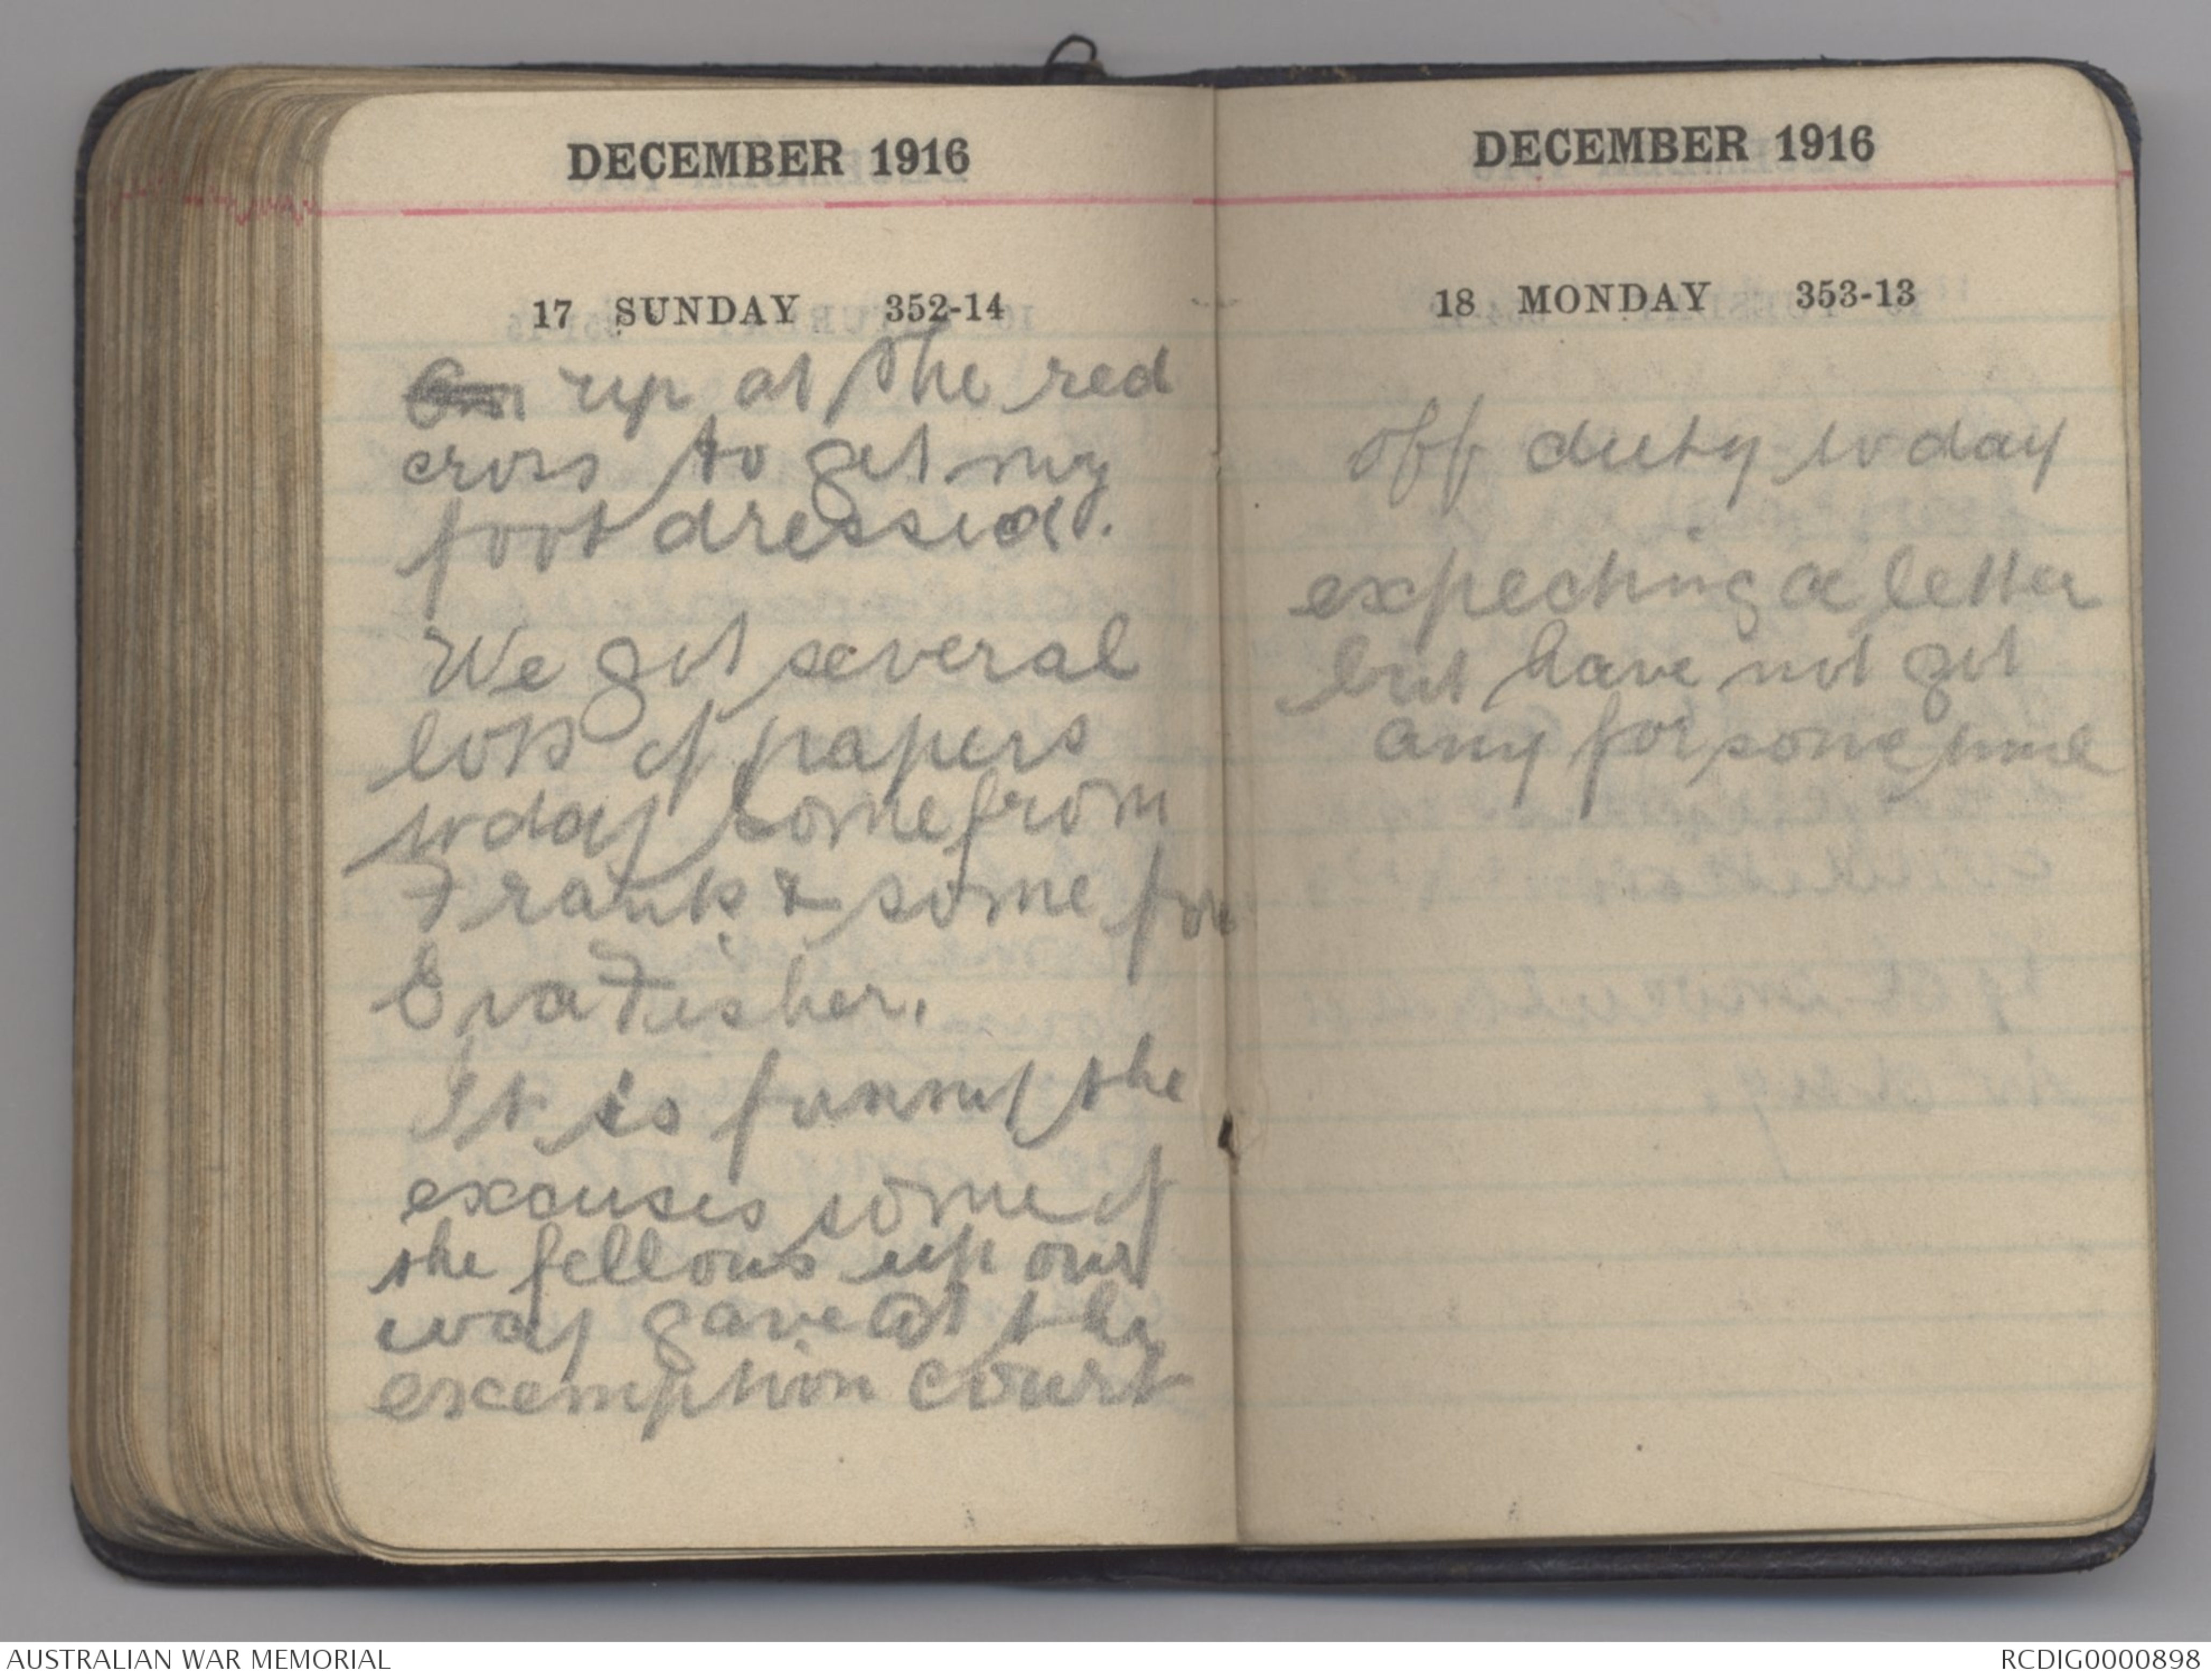 DECEMBER 1916
17 SUNDAY 352-14
up at the red
cross to get my
foot dressed.
We got several
lots of papers
today some from
Frank & some
Eva Fisher.
It is funny the
excuses some of
the fellows up our
way gave at the
exemption court
DECEMBER 1916
18 MONDAY 353-13
off duty today
expecting a letter
but have not got
any for some time
AUSTRALIAN WAR MEMORIAL
RCDIG0000898